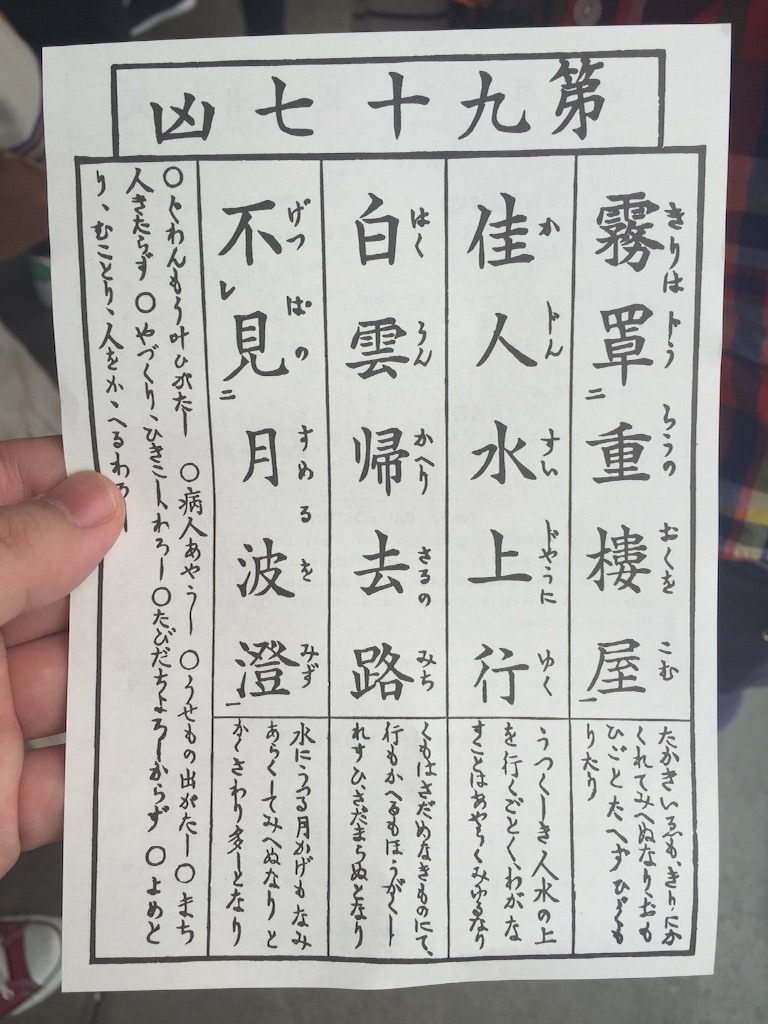 第九十七凶
霧罩重樓屋
きりは どう ろうの おくを こむ
たかきいゑも、きりにか
くれてみへぬなり、おも
ひごとたへずひ
りたり
佳人水上行
か じん すい じやうに ゆく
うつくしき人水の上
を行くごとく、わがな
すことはあやうくみゆるなり
白雲帰去路
はく うん かへり さるの みち
くもはさだめなきものにて、
行もかへるもほうがくし
れすひ、さだまらぬとなり
不レ見二月波澄一
げつ ぱの すめ るを みず
水にうつる月かげもなみ
あらくしてみへぬなり と
かくさわり多しとなり
〇ぐわんもう叶ひがたし 〇病人あやうし 〇うせもの出がたし〇まち
人きたらず 〇やづくり、ひきこしわろし〇たびだちよろしからず 〇よめと
り、むことり、人をかゝへるわろし